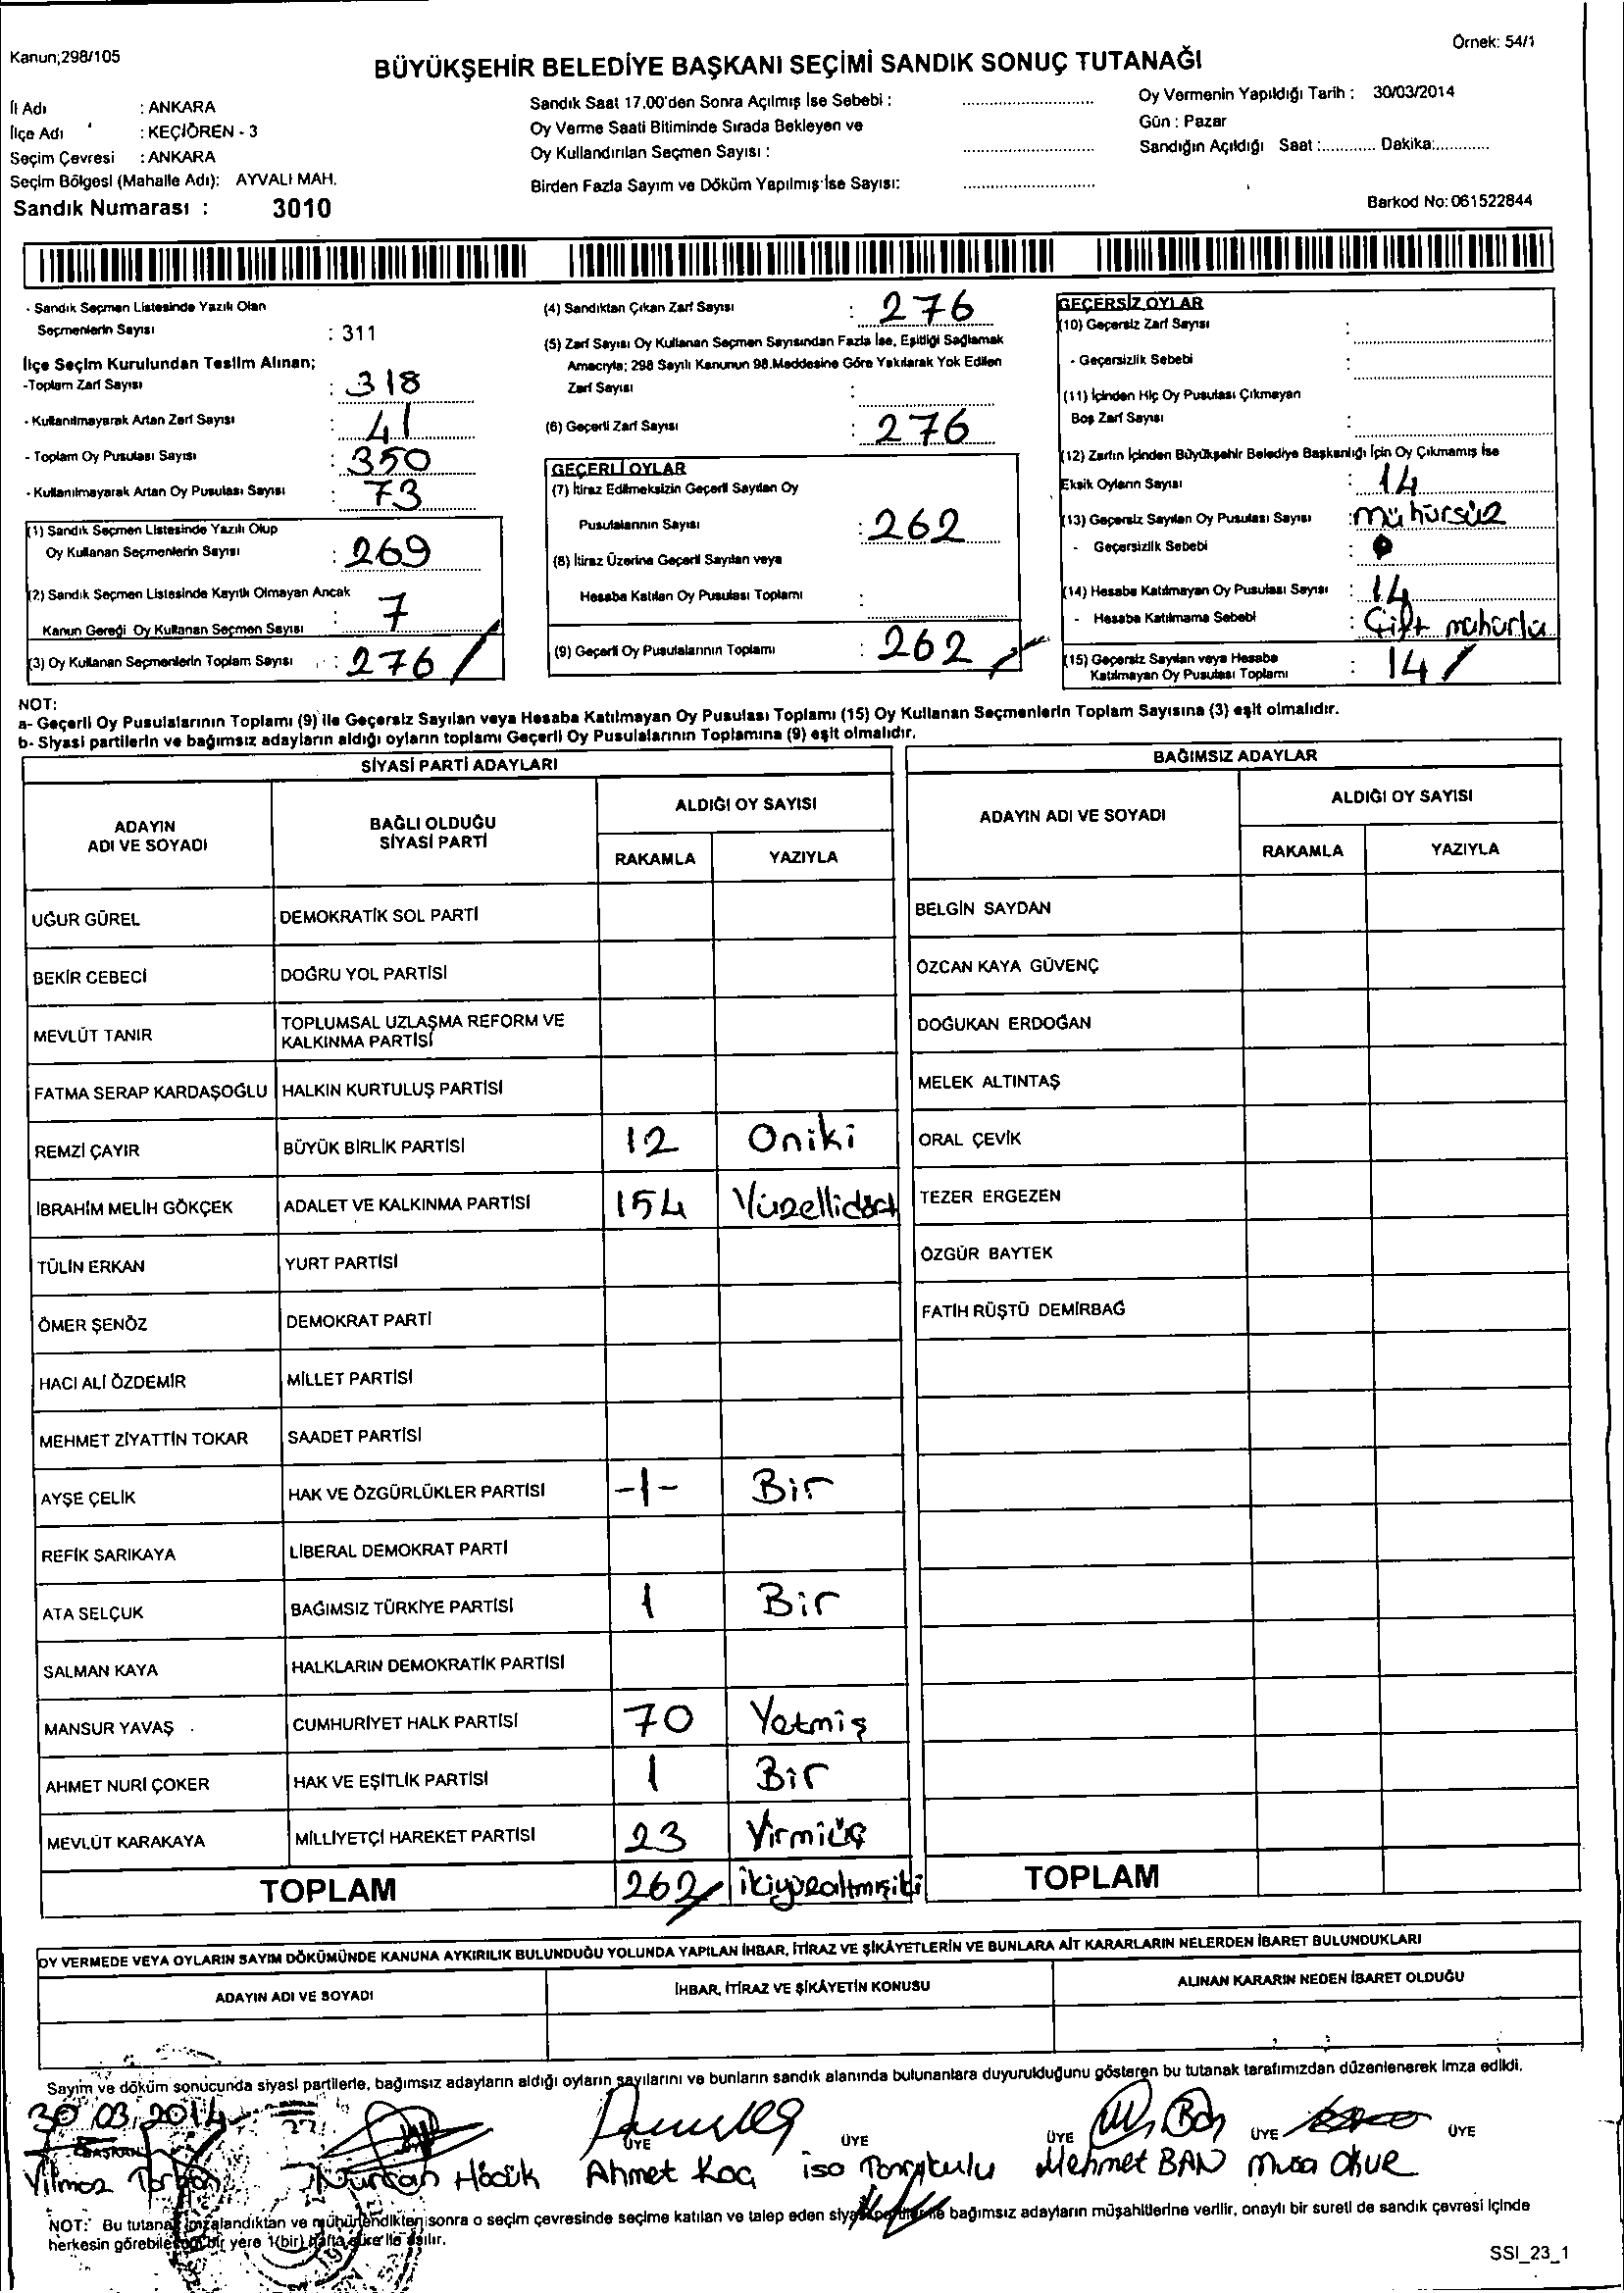 Kanun;298/105
Örnek: 54/1
BÜYÜKŞEHİR BELEDİYE BAŞKANI SEÇİMİ SANDIK SONUÇ TUTANAĞI
İl Adı : ANKARA
İlçe Adı : KEÇİÖREN - 3
Seçim Çevresi : ANKARA
Seçim Bölgesi (Mahalle Adı): AYVALI MAH.
Sandık Numarası : 3010
Sandık Saat 17.00'den Sonra Açılmış İse Sebebi :
Oy Verme Saati Bitiminde Sırada Bekleyen ve
Oy Kullandırılan Seçmen Sayısı :
Birden Fazla Sayım ve Döküm Yapılmış İse Sayısı:
Oy Vermenin Yapıldığı Tarih : 30/03/2014
Gün : Pazar
Sandığın Açıldığı Saat :............ Dakika:............
Barkod No:061522844
- Sandık Seçmen Listesinde Yazılı Olan
Seçmenlerin Sayısı : 311
İlçe Seçim Kurulundan Teslim Alınan;
-Toplam Zarf Sayısı : 318
- Kullanılmayarak Artan Zarf Sayısı : 41
- Toplam Oy Pusulası Sayısı : 350
- Kullanılmayarak Artan Oy Pusulası Sayısı : 73
(1) Sandık Seçmen Listesinde Yazılı Olup
Oy Kullanan Seçmenlerin Sayısı : 269
(2) Sandık Seçmen Listesinde Kayıtlı Olmayan Ancak
Kanun Gereği Oy Kullanan Seçmen Sayısı : 7
(3) Oy Kullanan Seçmenlerin Toplam Sayısı : 276
(4) Sandıktan Çıkan Zarf Sayısı : 276
(5) Zarf Sayısı Oy Kullanan Seçmen Sayısından Fazla İse, Eşitliği Sağlamak
Amacıyla; 298 Sayılı Kanunun 98.Maddesine Göre Yakılarak Yok Edilen
Zarf Sayısı :
(6) Geçerli Zarf Sayısı : 276
GEÇERLİ OYLAR
(7) İtiraz Edilmeksizin Geçerli Sayılan Oy
Pusulalarının Sayısı : 262
(8) İtiraz Üzerine Geçerli Sayılan veya
Hesaba Katılan Oy Pusulası Toplamı :
(9) Geçerli Oy Pusulalarının Toplamı : 262
GEÇERSİZ OYLAR
(10) Geçersiz Zarf Sayısı :
- Geçersizlik Sebebi :
(11) İçinden Hiç Oy Pusulası Çıkmayan
Boş Zarf Sayısı :
(12) Zarfın İçinden Büyükşehir Belediye Başkanlığı İçin Oy Çıkmamış İse
Eksik Oyların Sayısı : 14
(13) Geçersiz Sayılan Oy Pusulası Sayısı : mühürsüz
- Geçersizlik Sebebi :
(14) Hesaba Katılmayan Oy Pusulası Sayısı : 14
- Hesaba Katılmama Sebebi : Çift mühürlü
(15) Geçersiz Sayılan veya Hesaba
Katılmayan Oy Pusulası Toplamı : 14
NOT:
a- Geçerli Oy Pusulalarının Toplamı (9) ile Geçersiz Sayılan veya Hesaba Katılmayan Oy Pusulası Toplamı (15) Oy Kullanan Seçmenlerin Toplam Sayısına (3) eşit olmalıdır.
b- Siyasi partilerin ve bağımsız adayların aldığı oyların toplamı Geçerli Oy Pusulalarının Toplamına (9) eşit olmalıdır.
SİYASİ PARTİ ADAYLARI
ADAYIN ADI VE SOYADI
BAĞLI OLDUĞU SİYASİ PARTİ
ALDIĞI OY SAYISI
RAKAMLA YAZIYLA
UĞUR GÜREL DEMOKRATİK SOL PARTİ
BEKİR CEBECİ DOĞRU YOL PARTİSİ
MEVLÜT TANIR TOPLUMSAL UZLAŞMA REFORM VE
KALKINMA PARTİSİ
FATMA SERAP KARDAŞOĞLU HALKIN KURTULUŞ PARTİSİ
REMZİ ÇAYIR BÜYÜK BİRLİK PARTİSİ 12 Oniki
İBRAHİM MELİH GÖKÇEK ADALET VE KALKINMA PARTİSİ 154 Yüzellidört
TÜLİN ERKAN YURT PARTİSİ
ÖMER ŞENÖZ DEMOKRAT PARTİ
HACI ALİ ÖZDEMİR MİLLET PARTİSİ
MEHMET ZİYATTİN TOKAR SAADET PARTİSİ
AYŞE ÇELİK HAK VE ÖZGÜRLÜKLER PARTİSİ -1- Bir
REFİK SARIKAYA LİBERAL DEMOKRAT PARTİ
ATA SELÇUK BAĞIMSIZ TÜRKİYE PARTİSİ 1 Bir
SALMAN KAYA HALKLARIN DEMOKRATİK PARTİSİ
MANSUR YAVAŞ CUMHURİYET HALK PARTİSİ 70 Yetmiş
AHMET NURİ ÇOKER HAK VE EŞİTLİK PARTİSİ 1 Bir
MEVLÜT KARAKAYA MİLLİYETÇİ HAREKET PARTİSİ 23 Yirmiüç
TOPLAM 262 ikiyüzaltmışiki
BAĞIMSIZ ADAYLAR
ADAYIN ADI VE SOYADI
ALDIĞI OY SAYISI
RAKAMLA YAZIYLA
BELGİN SAYDAN
ÖZCAN KAYA GÜVENÇ
DOĞUKAN ERDOĞAN
MELEK ALTINTAŞ
ORAL ÇEVİK
TEZER ERGEZEN
ÖZGÜR BAYTEK
FATİH RÜŞTÜ DEMİRBAĞ
TOPLAM
OY VERMEDE VEYA OYLARIN SAYIM DÖKÜMÜNDE KANUNA AYKIRILIK BULUNDUĞU YOLUNDA YAPILAN İHBAR, İTİRAZ VE ŞİKÂYETLERİN VE BUNLARA AİT KARARLARIN NELERDEN İBARET BULUNDUKLARI
ADAYIN ADI VE SOYADI İHBAR, İTİRAZ VE ŞİKÂYETİN KONUSU ALINAN KARARIN NEDEN İBARET OLDUĞU
Sayım ve döküm sonucunda siyasi partilerle, bağımsız adayların aldığı oyların sayılarını ve bunların sandık alanında bulunanlara duyurulduğunu gösteren bu tutanak tarafımızdan düzenlenerek imza edildi.
30.03.2014
BAŞKAN ÜYE ÜYE ÜYE ÜYE ÜYE
Yılmaz Nurcan Ahmet Koç iso Mehmet BAN Musa OKUR
NOT: Bu tutanak imzalandıktan ve mühürlendikten sonra o seçim çevresinde seçime katılan ve talep eden siyasi partiler ile bağımsız adayların müşahitlerine verilir, onaylı bir sureti de sandık çevresi içinde
herkesin görebileceği bir yere 1(bir) hafta süre ile asılır.
SSI_23_1